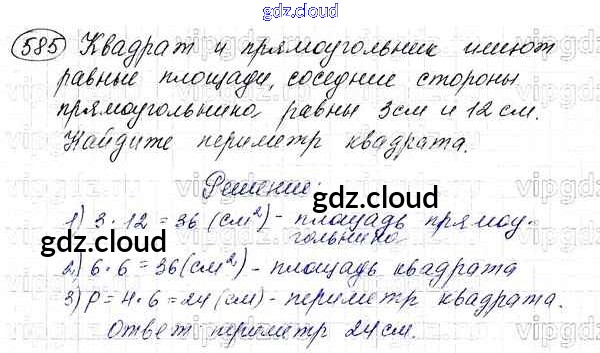 gdz.cloud
585 Квадрат и прямоугольник имеют
равные площади, соседние стороны
прямоугольника равны 3см и 12 см.
Найдите периметр квадрата.
Решение:
gdz.cloud
1) 3 · 12 = 36 (см²) - площадь прямоу-
гольника
gdz.cloud
2) 6 · 6 = 36 (см²) - площадь квадрата
3) P = 4 · 6 = 24 (см) - периметр квадрата.
Ответ периметр 24 см.
gdz.cloud